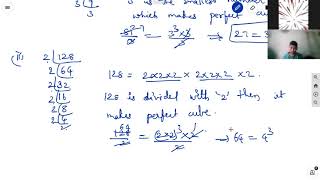 3 9
3
3 is the smallest number
which makes perfect cube
= 3³×3 → 27 = 3
(iii) 2 128
2 64
2 32
2 16
2 8
2 4
2
128 = 2×2×2 × 2×2×2 × 2.
128 is divided with '2' then it
makes perfect cube.
64
128/2 = (2×2)³×2/2 → 64 = 4³